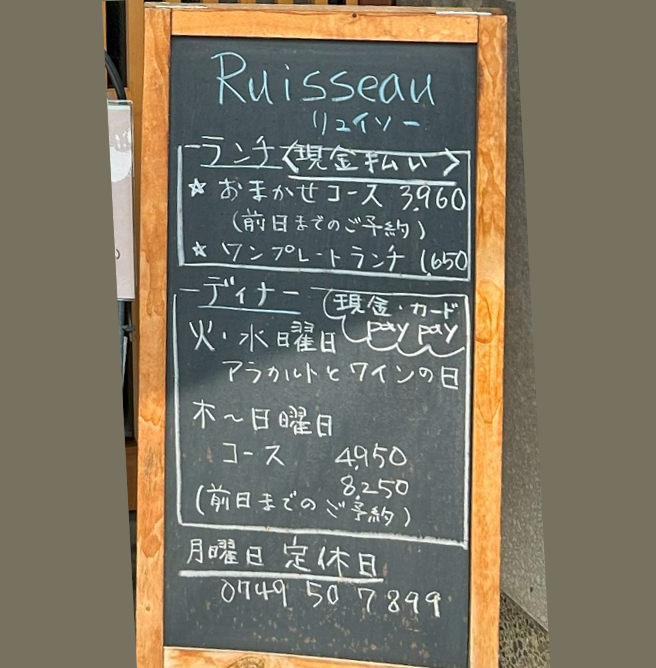 Ruisseau
リュイソー
ランチ〈現金払い〉
☆ おまかせコース 3,960
(前日までのご予約)
☆ ワンプレートランチ 1,650
ディナー
現金・カード
pay pay
火・水曜日
アラカルトとワインの日
木〜日曜日
コース 4,950
8,250
(前日までのご予約)
月曜日 定休日
0749 50 7899